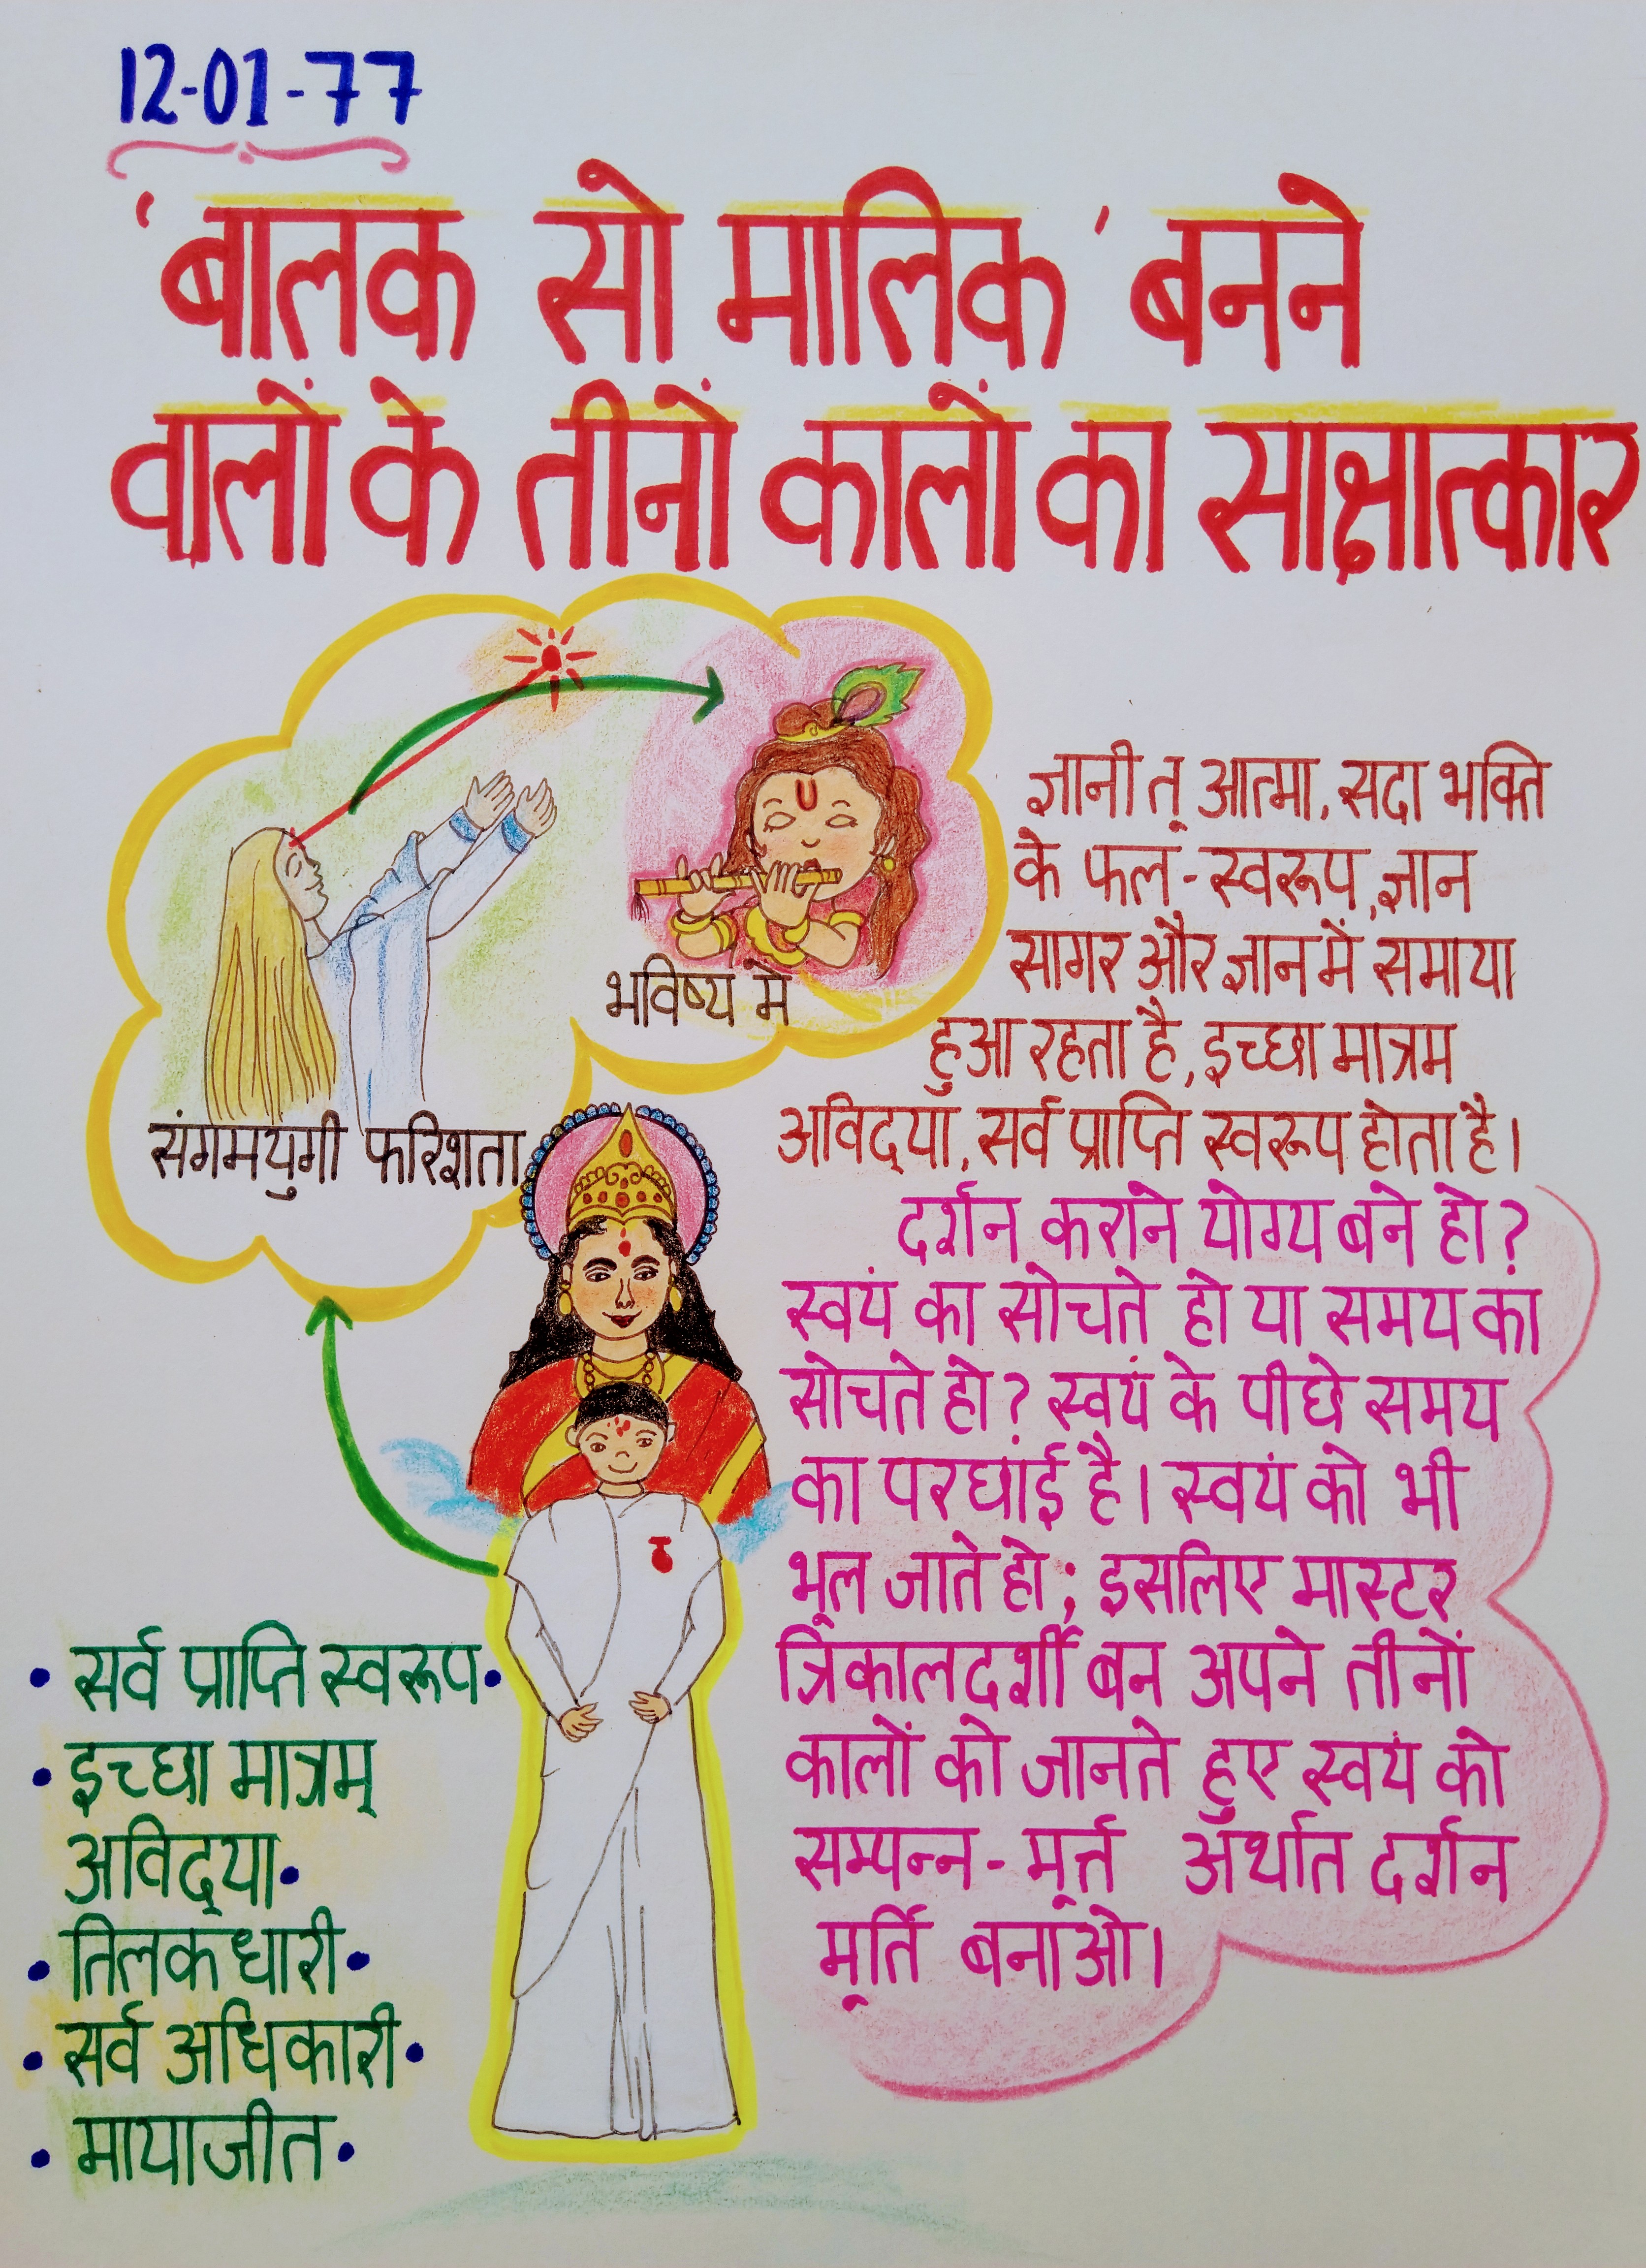 12-01-77
'बालक सो मालिक' बनने
वालों के तीनों कालों का साक्षात्कार
भविष्य में
संगमयुगी फरिश्ता
ज्ञानी तू आत्मा, सदा भक्ति
के फल-स्वरूप, ज्ञान
सागर और ज्ञान में समाया
हुआ रहता है, इच्छा मात्रम
अविद्या, सर्व प्राप्ति स्वरूप होता है।
दर्शन कराने योग्य बने हो?
स्वयं का सोचते हो या समय का
सोचते हो? स्वयं के पीछे समय
का परछांई है। स्वयं को भी
भूल जाते हो; इसलिए मास्टर
त्रिकालदर्शी बन अपने तीनों
कालों को जानते हुए स्वयं को
सम्पन्न-मूर्त्त अर्थात दर्शन
मूर्ति बनाओ।
• सर्व प्राप्ति स्वरूप•
• इच्छा मात्रम्
अविद्या•
• तिलकधारी•
• सर्व अधिकारी•
• मायाजीत•